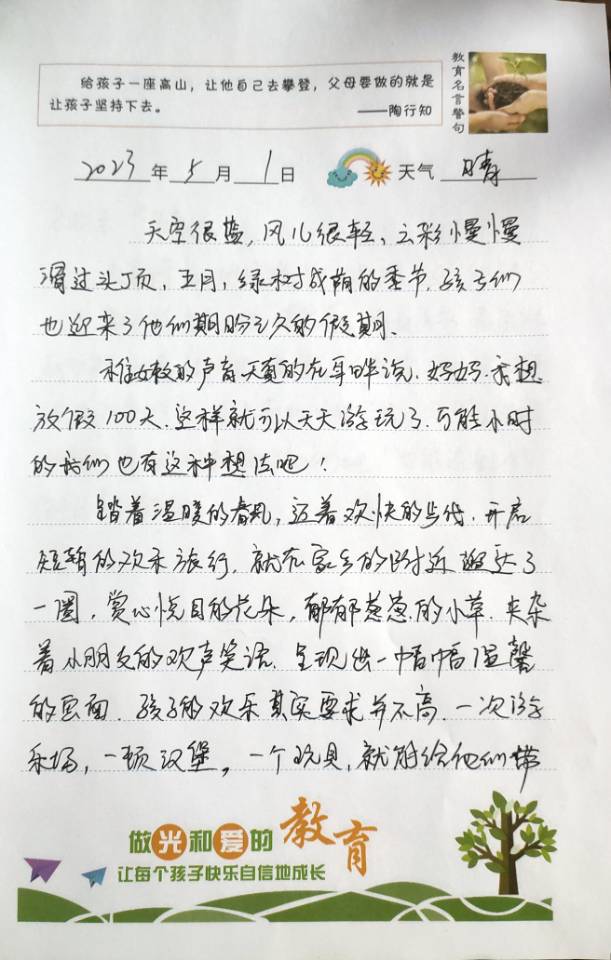 给孩子一座高山，让他自己去攀登，父母要做的就是
让孩子坚持下去。
——陶行知
教育名言警句
2023年5月1日 天气 晴
天空很蓝，风儿很轻、云彩慢慢
滑过头顶，五月，绿树成荫的季节，孩子们
也迎来了他们期盼已久的假期。
稚嫩的声音天真的在耳畔说，妈妈，我想
放假100天，这样就可以天天游玩了，可能小时
的我们也有这种想法吧！
踏着温暖的春风，迈着欢快的步伐，开启
短暂的欢乐旅行，就在家乡的附近溜达了
一圈，赏心悦目的花朵，郁郁葱葱的小草，夹杂
着小朋友的欢声笑语，呈现出一幅幅温馨
的画面，孩子的欢乐其实要求并不高，一次游
乐场，一顿汉堡，一个玩具，就能给他们带
做光和爱的教育
让每个孩子快乐自信地成长